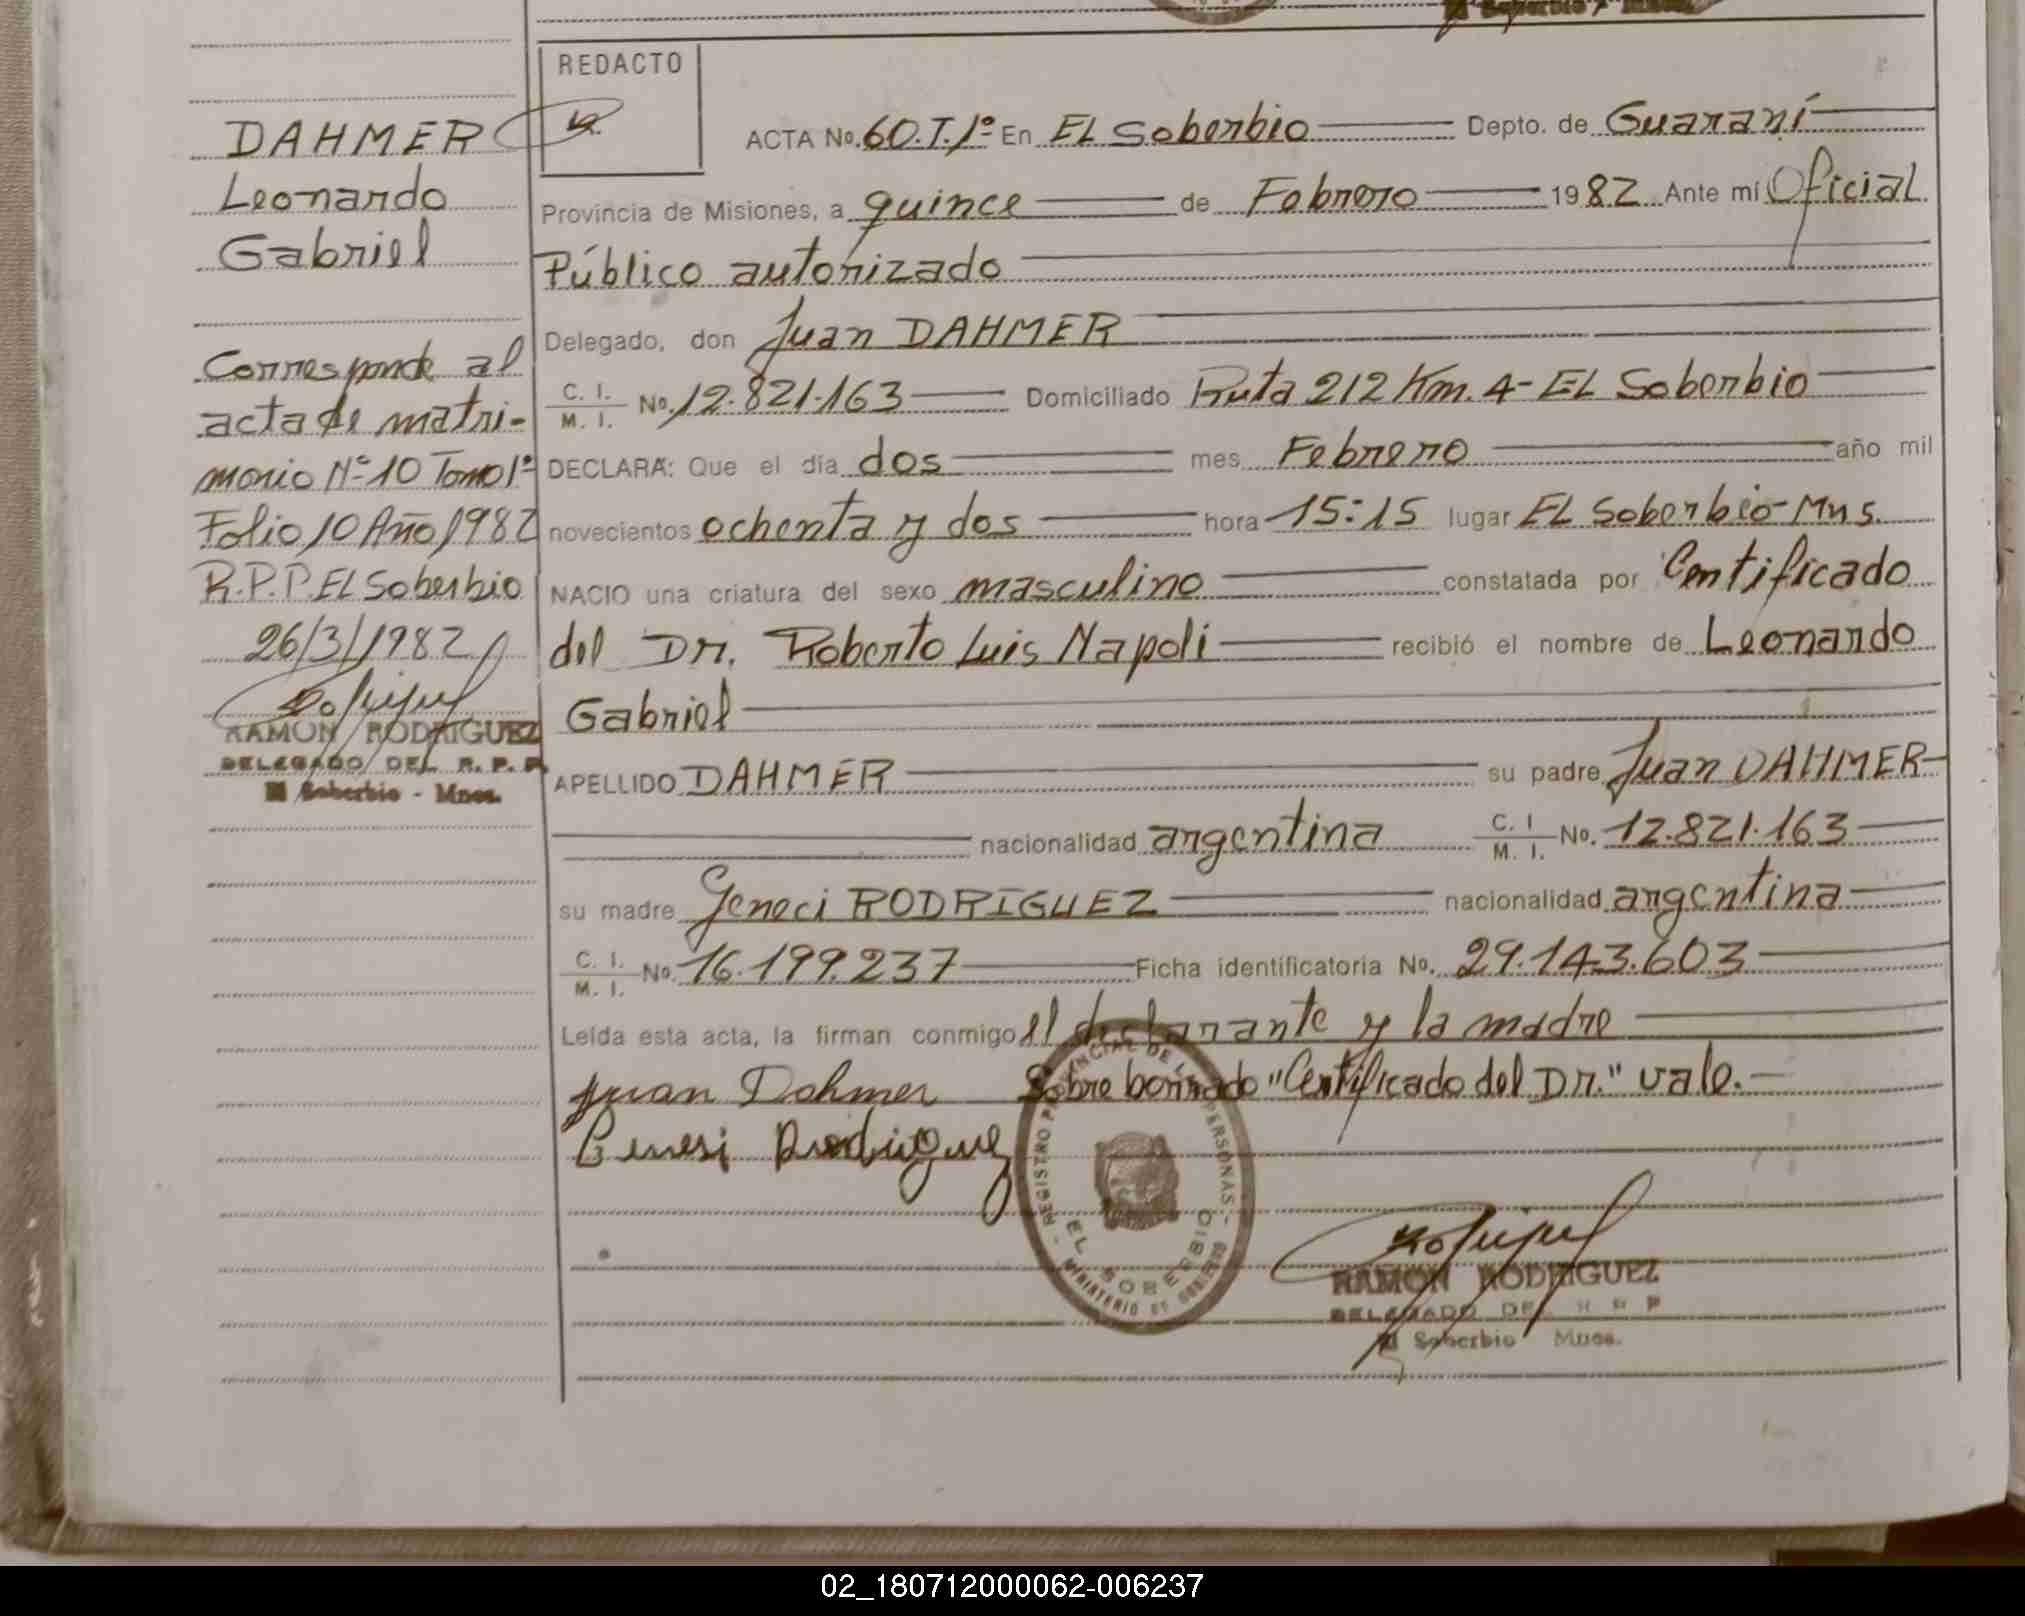 DAHMER
Leonardo
Gabriel
Corresponde al
acta de matri-
monio Nº 10 Tomo 1º
Folio 10 Año 1982
R.P.P. EL Soberbio
26/3/1982
RAMON RODRIGUEZ
DELEGADO DEL R. P. P.
El Soberbio - Mnes.
REDACTO
ACTA No. 60.T.1º En EL Soberbio Depto. de Guaraní
Provincia de Misiones, a quince de Febrero 1982 Ante mí Oficial
Público autorizado
Delegado, don Juan DAHMER
C. I. / M. I. No. 12.821.163 Domiciliado Ruta 212 Km. 4 - EL Soberbio
DECLARA: Que el día dos mes Febrero año mil
novecientos ochenta y dos hora 15:15 lugar EL Soberbio - Mns.
NACIO una criatura del sexo masculino constatada por Certificado
del Dr. Roberto Luis Napoli recibió el nombre de Leonardo
Gabriel
APELLIDO DAHMER su padre Juan DAHMER
nacionalidad argentina C. I / M. I. No. 12.821.163
su madre Geneci RODRIGUEZ nacionalidad argentina
C. I. / M. I. No. 16.199.237 Ficha identificatoria No. 29.143.603
Leída esta acta, la firman conmigo el declarante y la madre
Juan Dahmer Sobre borrado "Certificado del Dr." vale.-
Genesi Rodriguez
REGISTRO PROVINCIAL DE LAS PERSONAS
EL SOBERBIO
MINISTERIO DE GOBIERNO
RAMON RODRIGUEZ
DELEGADO DEL R R P
El Soberbio Mnes.
02_180712000062-006237